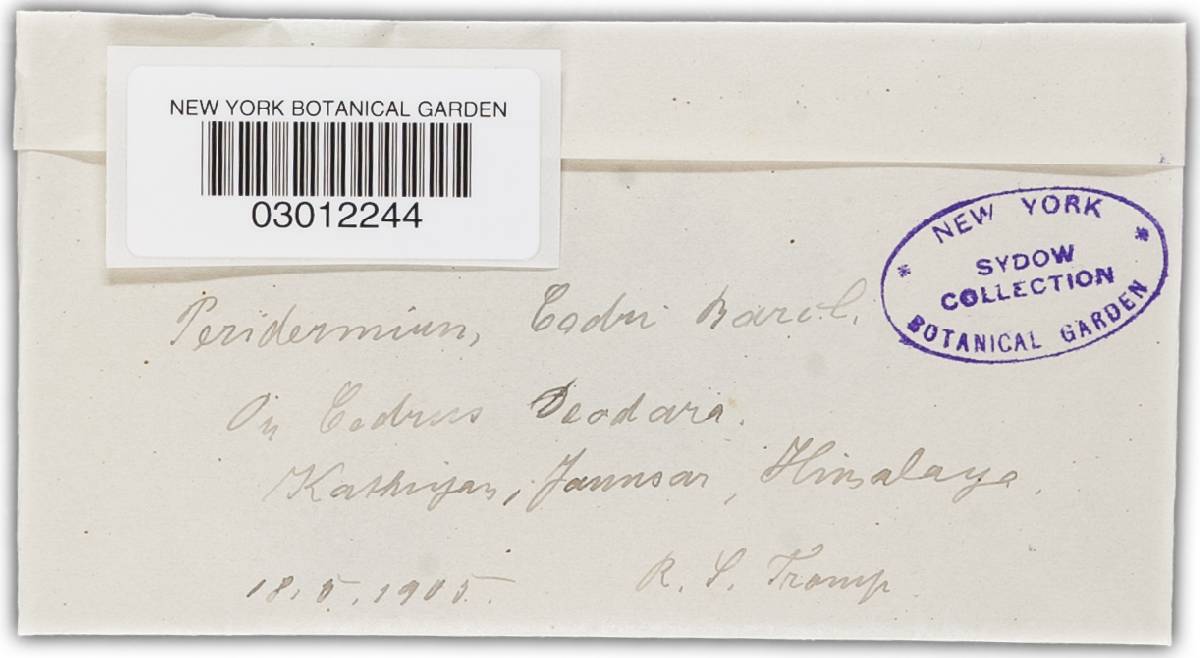 NEW YORK BOTANICAL GARDEN
03012244
NEW YORK
SYDOW
COLLECTION
BOTANICAL GARDEN
Peridermium, Cedri Barcl.
On Cedrus Deodara.
Kathiyan, Jaunsar, Himalaya.
18.5.1905.
R. S. Troup